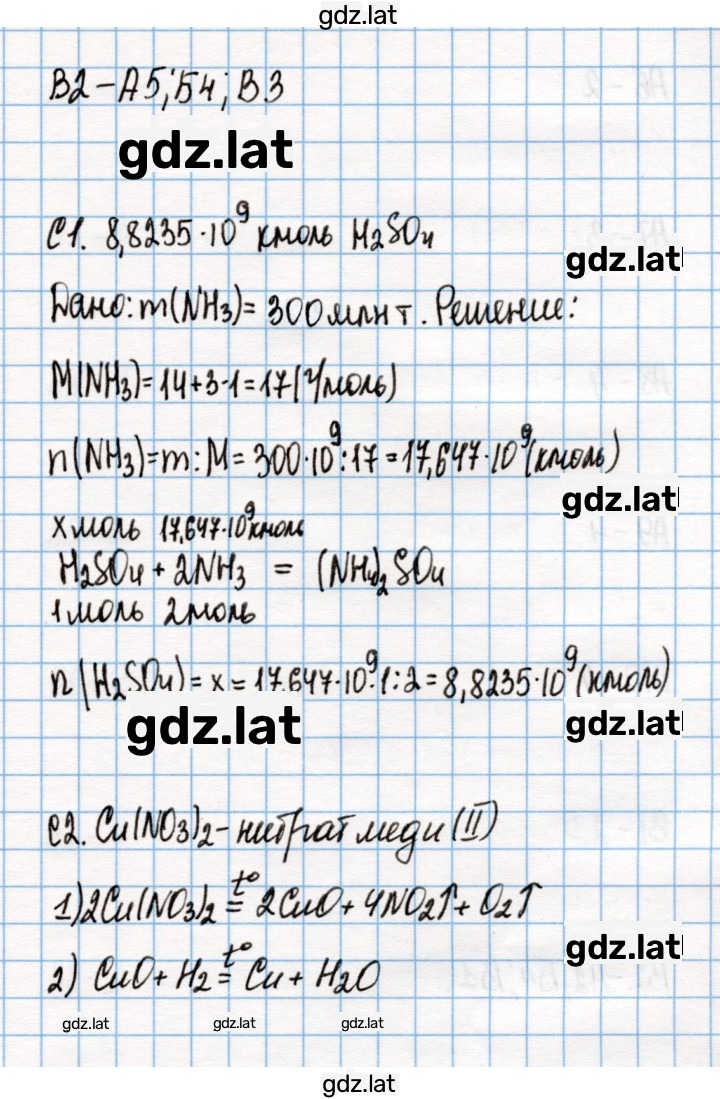 gdz.lat
В2 – А5; Б4; В3
gdz.lat
С1. 8,8235·10⁹ кмоль H₂SO₄
gdz.lat
Дано: m(NH₃) = 300 млн т. Решение:
M(NH₃) = 14+3·1 = 17 (г/моль)
n(NH₃) = m : M = 300·10⁹ : 17 = 17,647·10⁹ (кмоль)
gdz.lat
x моль 17,647·10⁹ кмоль
H₂SO₄ + 2NH₃ = (NH₄)₂SO₄
1 моль 2 моль
n(H₂SO₄) = x = 17,647·10⁹·1:2 = 8,8235·10⁹ (кмоль)
gdz.lat gdz.lat
С2. Cu(NO₃)₂ – нитрат меди (II)
t°
1) 2Cu(NO₃)₂ = 2CuO + 4NO₂↑ + O₂↑
gdz.lat
t°
2) CuO + H₂ = Cu + H₂O
gdz.lat gdz.lat gdz.lat
gdz.lat